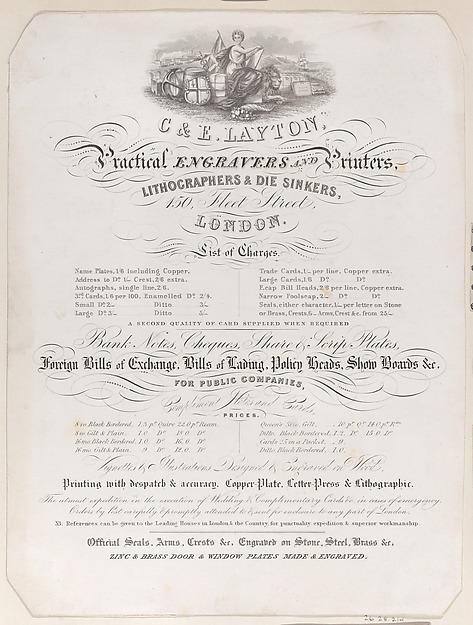 C & E. LAYTON,
Practical ENGRAVERS AND Printers,
LITHOGRAPHERS & DIE SINKERS,
150, Fleet Street,
LONDON.
List of Charges.
Name Plates, 1/6 including Copper.
Address to Do 1/- Crest, 2/6 extra.
Autographs, single line, 2/6.
3rd Cards, 1/6 per 100. Enamelled Do 2/4.
Small Do 2/- Ditto 3/-
Large Do 3/- Ditto 5/-
Trade Cards, 1/- per line, Copper extra.
Large Cards, 1/6 Do Do
F.cap Bill Heads, 2/6 per line, Copper extra.
Narrow Foolscap, 2/- Do Do
Seals, either character, 1/- per letter on Stone
or Brass, Crests, 6/- Arms, Crest &c. from 25/-
A SECOND QUALITY OF CARD SUPPLIED WHEN REQUIRED
Bank Notes, Cheques, Share & Scrip Plates,
Foreign Bills of Exchange, Bills of Lading, Policy Heads, Show Boards &c.
FOR PUBLIC COMPANIES,
Compliment Notes and Cards,
PRICES.
8vo Black Bordered. 1.3 pr Quire 22.0 pr Ream.
8vo Gilt & Plain. 1.0 Do 19.0 Do
16mo Black Bordered. 1.0 Do 16.0 Do
16mo Gilt & Plain. .9 Do 12.0 Do
Queen's Size, Gilt. .10 pr Qr 14.0 pr Rm
Ditto Black Bordered. 1.2. Do 15.0 Do
Cards 25 in a Packet. .9.
Ditto Black Bordered. 1.0.
Vignettes & Illustrations Designed & Engraved on Wood.
Printing with despatch & accuracy. Copper-Plate, Letter-Press & Lithographic.
The utmost expedition in the execution of Wedding & Complimentary Cards &c. in cases of emergency.
Orders by Post carefully & promptly attended to & sent free inclosure to any part of London.
References can be given to the Leading Houses in London & the Country, for punctuality expedition & superior workmanship.
Official Seals, Arms, Crests &c. Engraved on Stone, Steel, Brass &c.
ZINC & BRASS DOOR & WINDOW PLATES MADE & ENGRAVED.